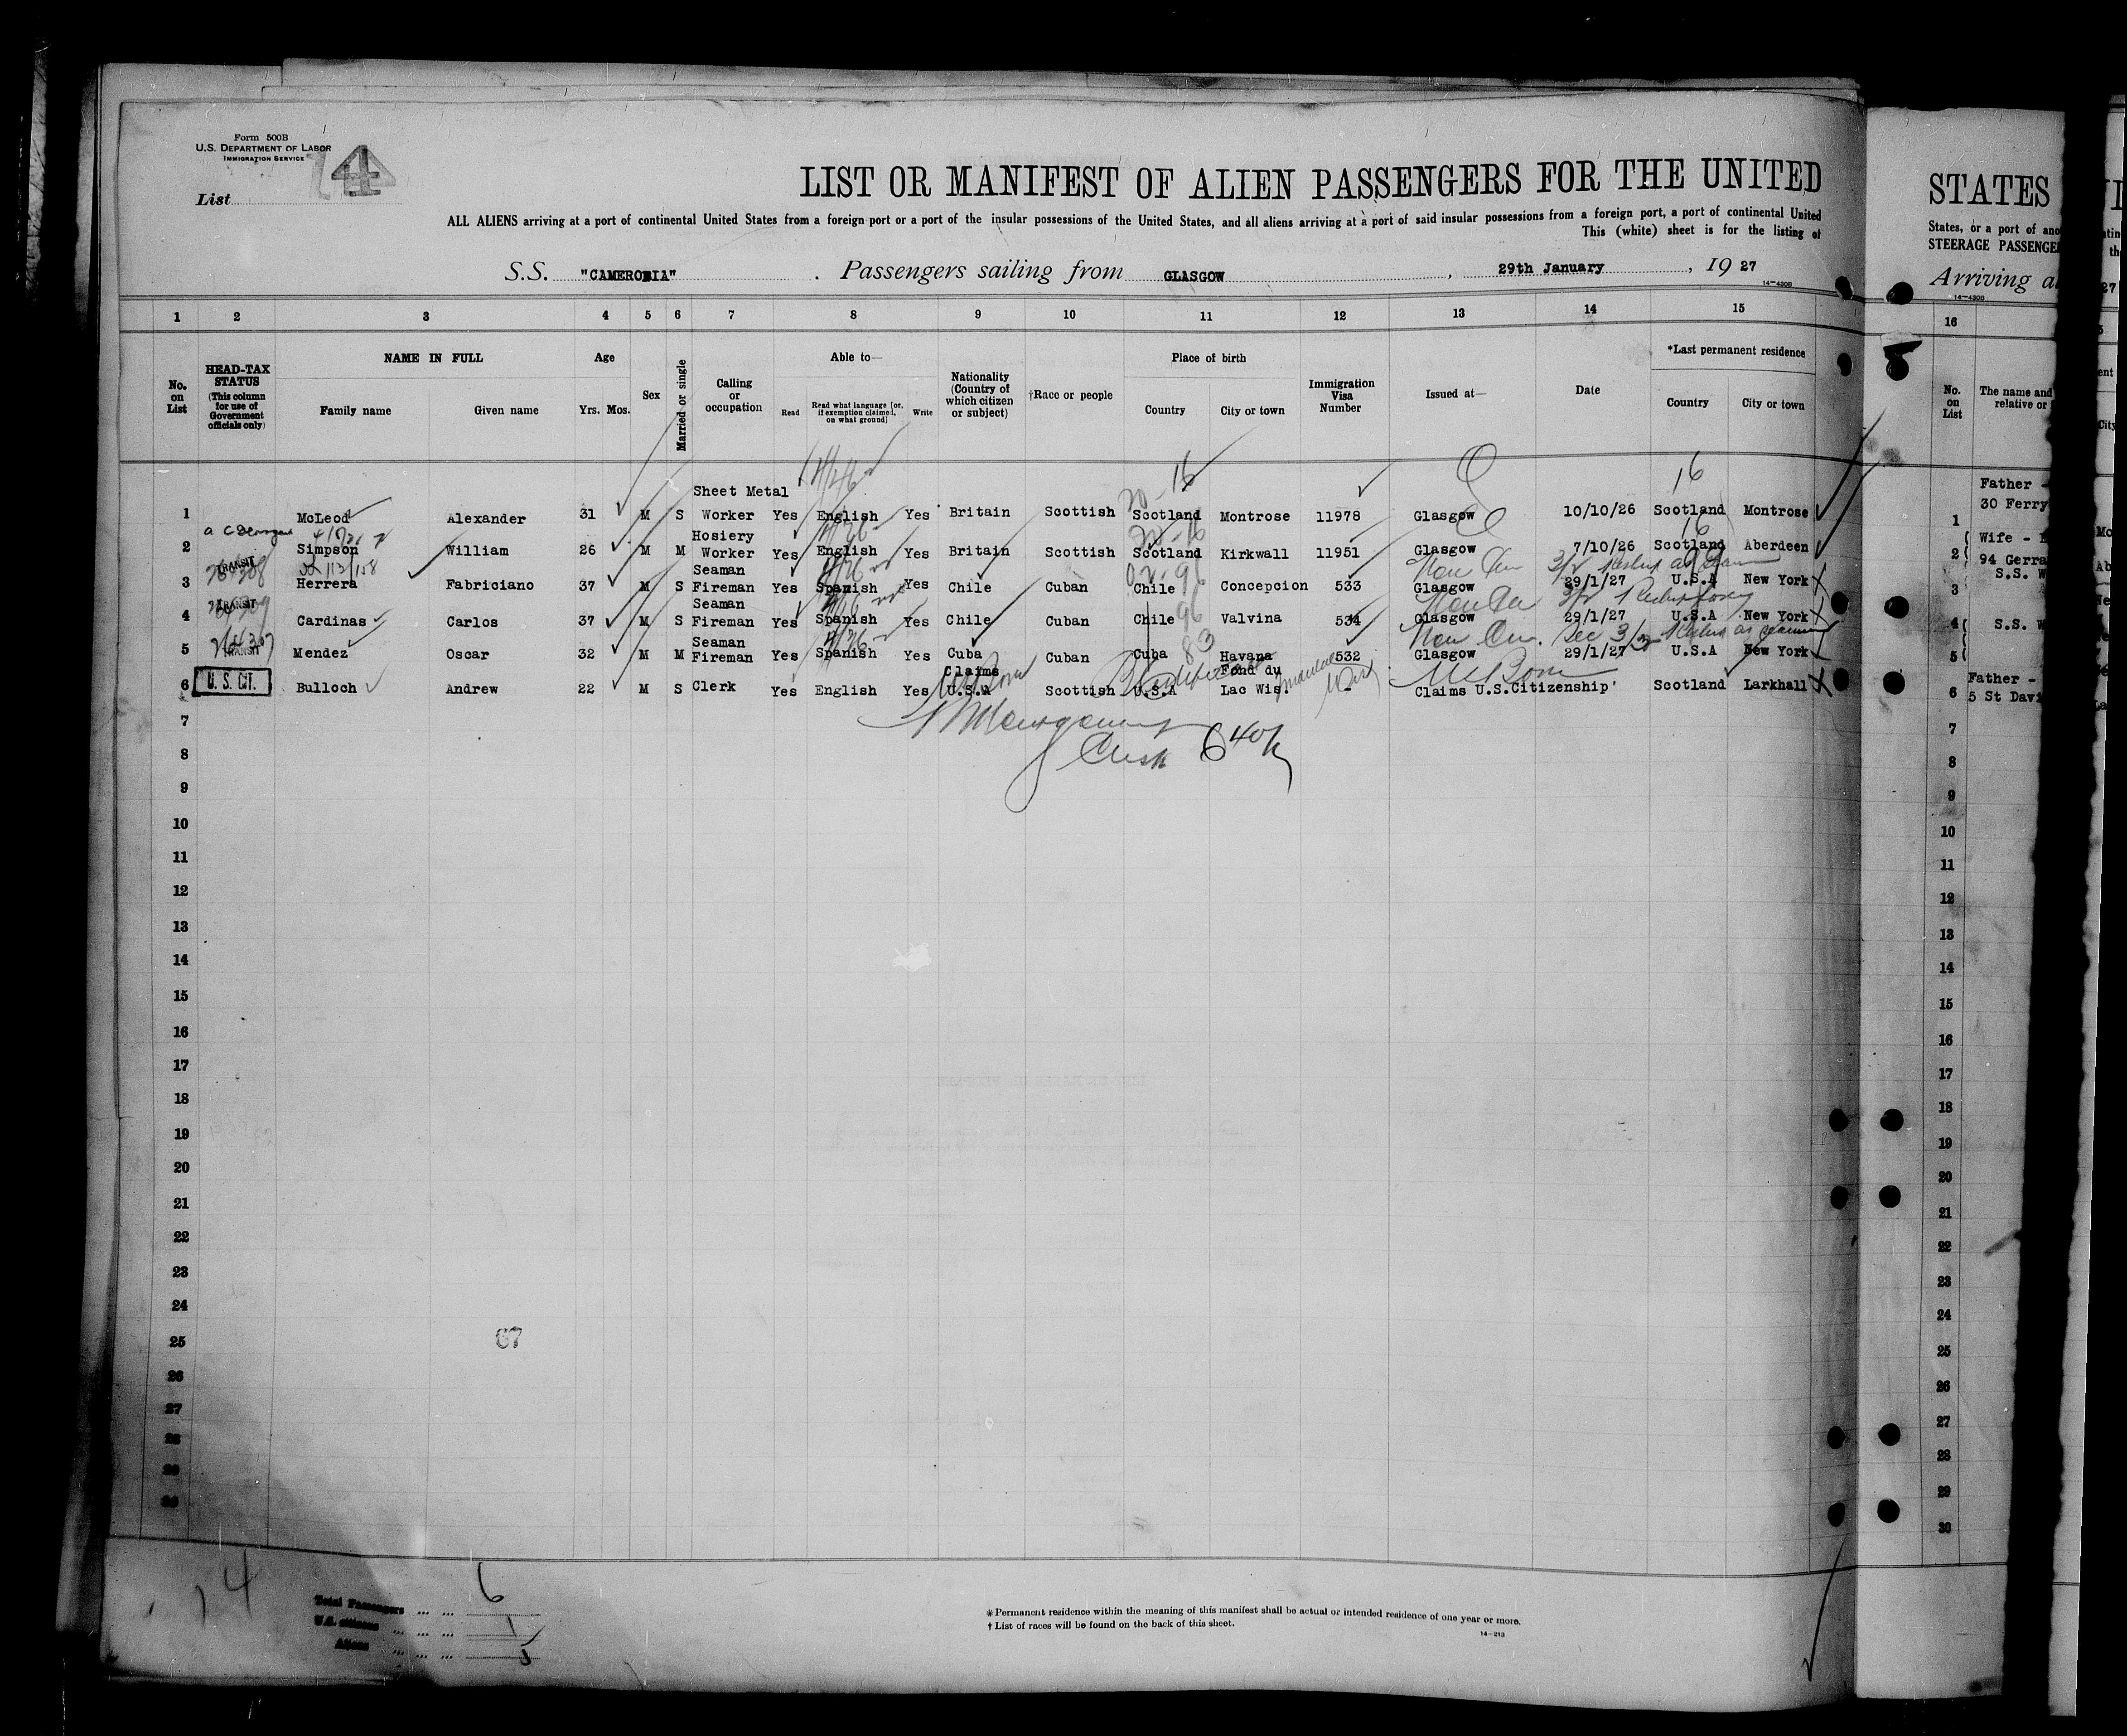 Form 500B
U.S. DEPARTMENT OF LABOR
IMMIGRATION SERVICE
4
List
LIST OR MANIFEST OF ALIEN PASSENGERS FOR THE UNITED
ALL ALIENS arriving at a port of continental United States from a foreign port or a port of the insular possessions of the United States, and all aliens arriving at a port of said insular possessions from a foreign port, a port of continental United
This (white) sheet is for the listing of
S.S. "CAMERONIA" . Passengers sailing from GLASGOW , 29th January , 19 27
14-430B
1 2 3 4 5 6 7 8 9 10 11 12 13 14 15
No. on List
HEAD-TAX STATUS (This column for use of Government officials only)
NAME IN FULL
Family name Given name
Age
Yrs. Mos.
Sex
Married or single
Calling or occupation
Able to—
Read
Read what language [or, if exemption claimed, on what ground]
Write
Nationality (Country of which citizen or subject)
†Race or people
Place of birth
Country City or town
Immigration Visa Number
Issued at—
Date
*Last permanent residence
Country City or town
16 16
Sheet Metal
1 McLeod Alexander 31 M S Worker Yes English Yes Britain Scottish Scotland Montrose 11978 Glasgow 10/10/26 Scotland Montrose
Hosiery 16
2 Simpson William 26 M M Worker Yes English Yes Britain Scottish Scotland Kirkwall 11951 Glasgow 7/10/26 Scotland Aberdeen
TRANSIT Seaman
3 Herrera Fabriciano 37 M S Fireman Yes Spanish Yes Chile Cuban Chile Concepcion 533 Glasgow 29/1/27 U.S.A New York
TRANSIT Seaman 96
4 Cardinas Carlos 37 M S Fireman Yes Spanish Yes Chile Cuban Chile Valvina 534 Glasgow 29/1/27 U.S.A New York
TRANSIT Seaman 83
5 Mendez Oscar 32 M M Fireman Yes Spanish Yes Cuba Cuban Cuba Havana 532 Glasgow 29/1/27 U.S.A New York
U. S. CIT. Claims Fond du
6 Bulloch Andrew 22 M S Clerk Yes English Yes U.S.A Scottish U.S.A Lac Wis. - Claims U.S.Citizenship' Scotland Larkhall
7
8
9
10
11
12
13
14
15
16
17
18
19
20
21
22
23
24
25 67
26
27
28
29
30
14
Total Passengers ... ... 6
U.S. citizens ... ... ... 1
Aliens ... ... ... 5
*Permanent residence within the meaning of this manifest shall be actual or intended residence of one year or more.
† List of races will be found on the back of this sheet.
14-213
STATES
States, or a port of
STEERAGE
Arriving
14-430B
16
No. on List
The name and
relative or
Father -
1 30 Ferry
Wife -
2 94
S.S.
3
4 S.S.
5
Father -
6 5 St
7
8
9
10
11
12
13
14
15
16
17
18
19
20
21
22
23
24
25
26
27
28
29
30